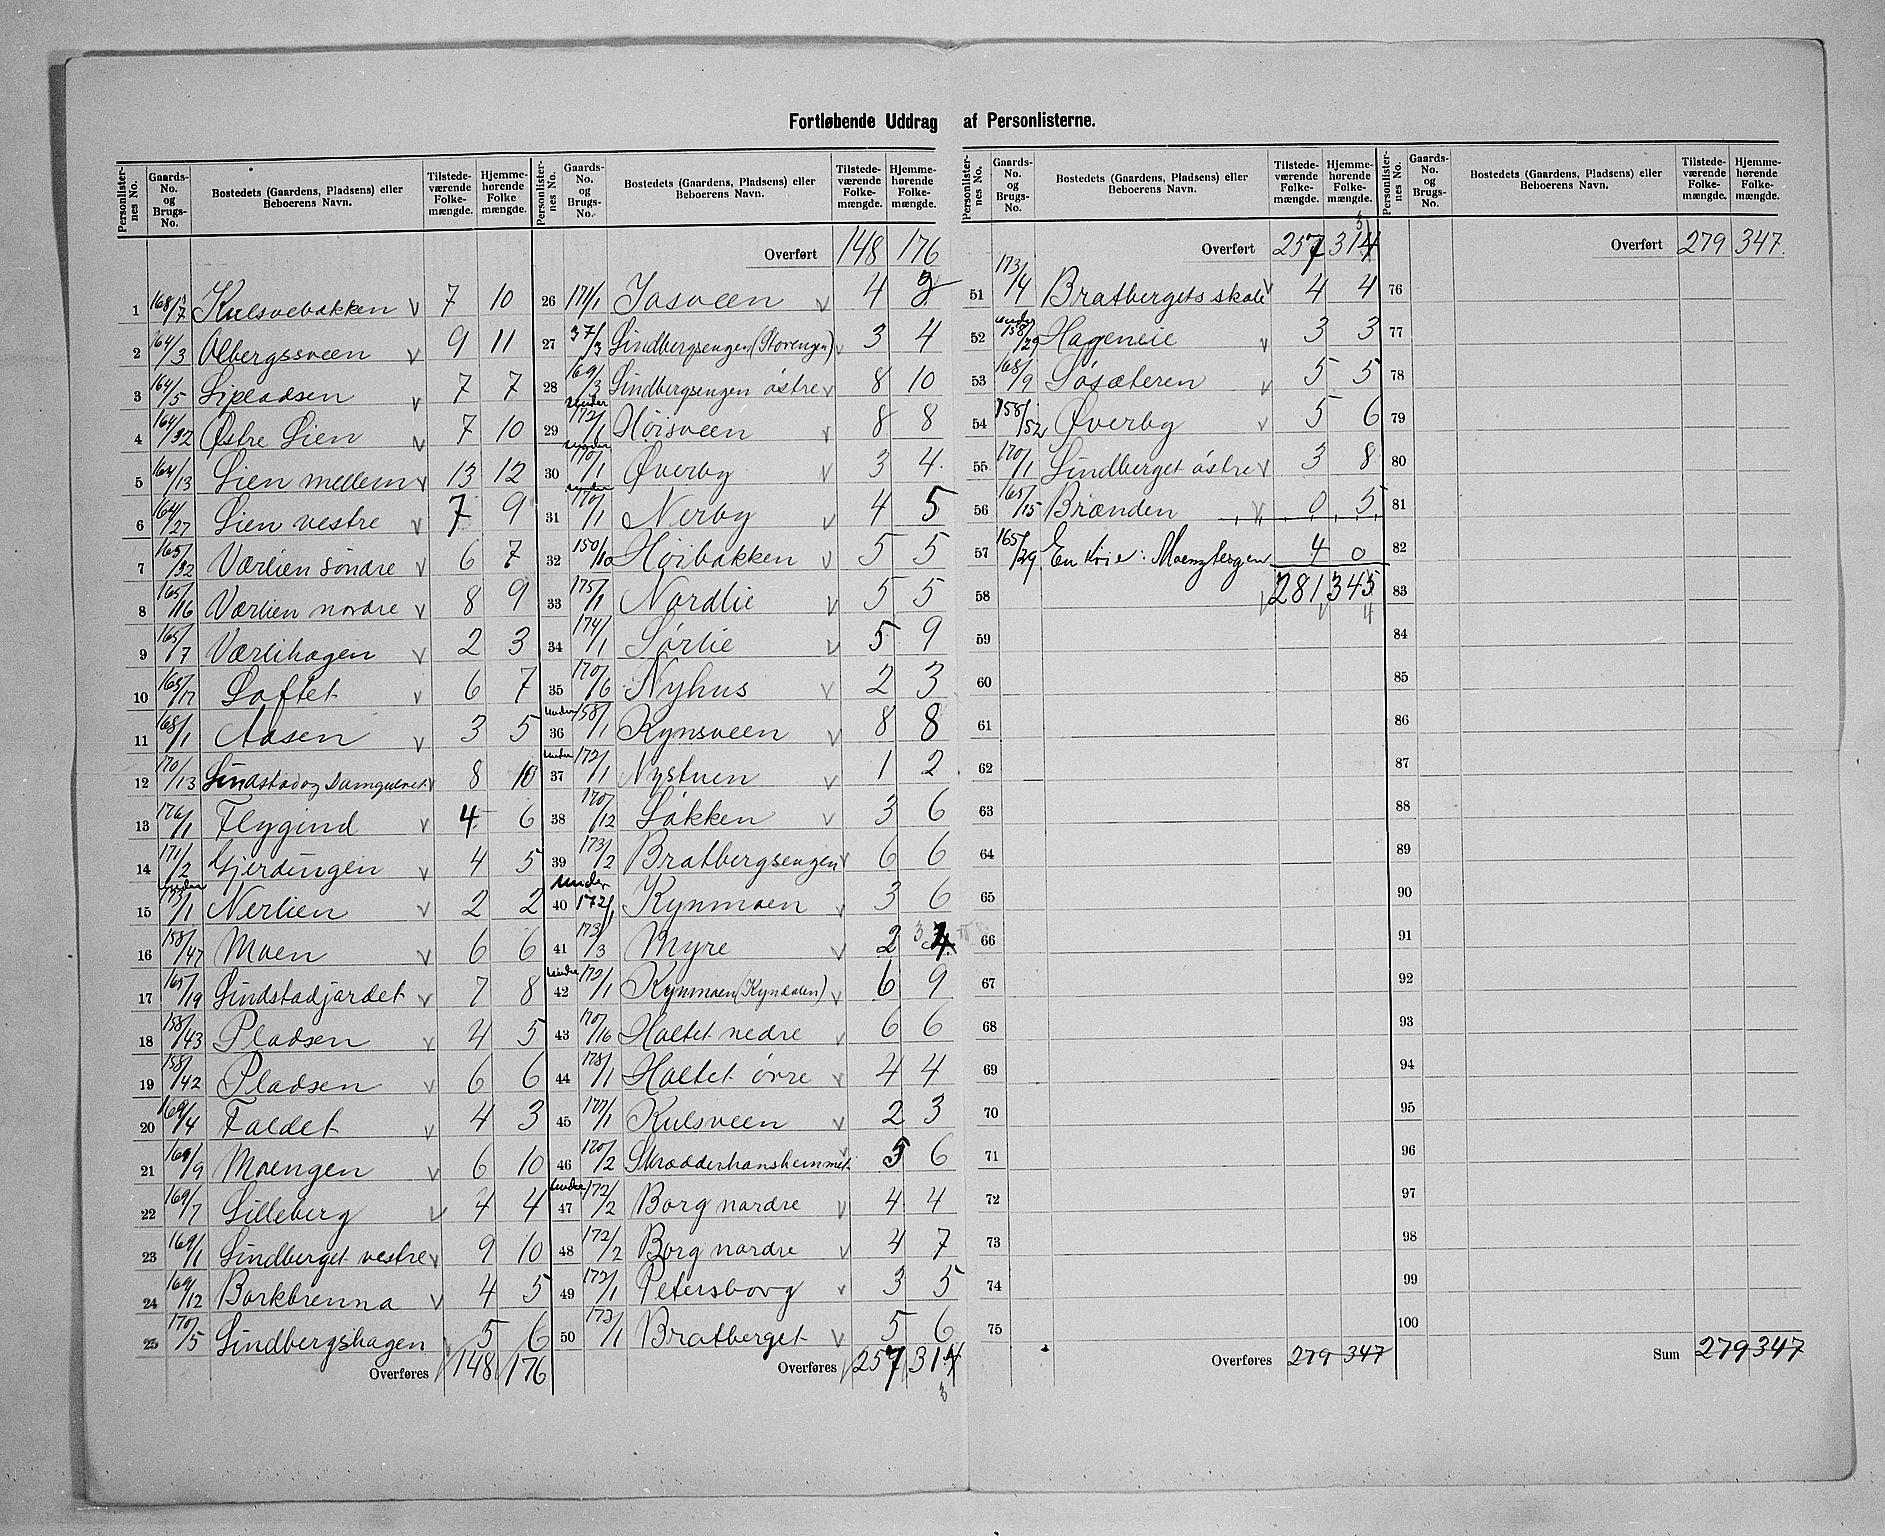 Fortløbende Uddrag af Personlisterne.
Personlister-nes No. Gaards-No. og Brugs-No. Bostedets (Gaardens, Pladsens) eller Beboerens Navn. Tilstede-værende Folke-mængde. Hjemme-hørende Folke mængde.
1 168/7 Kulsvebakken v 7 10
2 164/3 Olbergssveen v 9 11
3 164/5 Lipladsen v 7 7
4 164/32 Østre Lien v 7 10
5 164/13 Lien mellem v 13 12
6 164/27 Lien vestre v 7 9
7 165/32 Værlien søndre v 6 7
8 165/16 Værlien nordre v 8 9
9 165/7 Værlihagen v 2 3
10 165/17 Loftet v 6 7
11 168/1 Aasen v 3 5
12 170/13 Lindstad og v 8 10
13 176/1 Flygind v 4 6
14 171/2 Gjerdingen v 4 5
15 under 173/1 Nerlien v 2 2
16 158/47 Moen v 6 6
17 165/19 Lindstadjordet v 7 8
18 158/43 Pladsen v 4 5
19 158/42 Pladsen v 6 6
20 169/4 Faldet v 4 3
21 169/9 Moengen v 6 10
22 169/7 Lilleberg v 4 4
23 169/1 Lindberget vestre v 9 10
24 169/12 Borkbrenna v 4 5
25 170/5 Lindbergshagen v 5 6
Overføres 148 176
Personlister-nes No. Gaards-No. og Brugs-No. Bostedets (Gaardens, Pladsens) eller Beboerens Navn. Tilstede-værende Folke-mængde. Hjemme-hørende Folke-mængde.
Overført 148 176
26 171/1 Josveen v 4
27 37/3 Lindbergsengen (Storengen) v 3 4
28 169/3 Lindbergsengen østre v 8 10
29 under 172/1 Høisveen v 8 8
30 under 170/1 Øverby v 3 4
31 under 170/1 Nerby v 4 5
32 150/10 Høibakken v 5 5
33 175/1 Nordlie v 5 5
34 174/1 Sørlie v 5 9
35 170/6 Nyhus v 2 3
36 under 158/1 Kynsveen v 8 8
37 under 172/1 Nystuen v 1 2
38 170/12 Løkken v 3 6
39 173/2 Bratbergsengen v 6 6
40 under 172/1 Kynmoen v 3 6
41 173/3 Myre v 2 3 4
42 under 172/1 Kynmoen (Kyndalen) v 6 9
43 170/16 Holtet nedre v 6 6
44 178/1 Holtet øvre v 4 4
45 177/1 Kulsveen v 2 3
46 170/2 Skrædderhanshemmet v 5 6
47 under 172/2 Borg nordre v 4 4
48 172/2 Borg nordre v 4 7
49 172/1 Petersborg v 3 5
50 173/1 Bratberget v 5 6
Overføres 257 314
3
Personlister-nes No. Gaards-No. og Brugs-No. Bostedets (Gaardens, Pladsens) eller Beboerens Navn. Tilstede-værende Folke-mængde. Hjemme-hørende Folke-mængde.
3
Overført 257 314
51 173/4 Bratbergets skole v 4 4
52 under 158/29 Hageneie v 3 3
53 168/9 Løsæteren v 5 5
54 158/52 Øverby v 5 6
55 170/1 Lindberget østre v 3 8
56 165/15 Brænden v 0 5
57 165/29 En koie: Moengbergen 4 0
58 v 281 345
v 4
59
60
61
62
63
64
65
66
67
68
69
70
71
72
73
74
75
Overføres 279 347
Personlister-nes No. Gaards-No. og Brugs-No. Bostedets (Gaardens, Pladsens) eller Beboerens Navn. Tilstede-værende Folke-mængde. Hjemme-hørende Folke-mængde.
Overført 279 347.
76
77
78
79
80
81
82
83
84
85
86
87
88
89
90
91
92
93
94
95
96
97
98
99
100
Sum 279 347